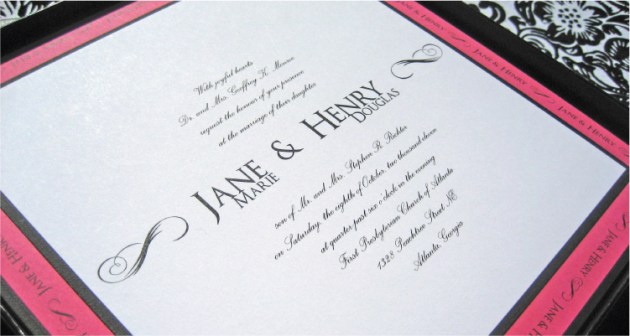 With joyful hearts
Dr. and Mrs. Geoffrey K. Monroe
request the honour of your presence
at the marriage of their daughter
JANE & HENRY
MARIE DOUGLAS
son of Mr. and Mrs. Stephen R. Richter
on Saturday, the eighth of October, two thousand eleven
at quarter past six o'clock in the evening
First Presbyterian Church of Atlanta
1328 Peachtree Street NE
Atlanta, Georgia
JANE & HENRY
JANE & HENRY
JANE & HENRY
JANE & HENRY
JANE & HENRY
JANE & HENRY
JANE & HENRY